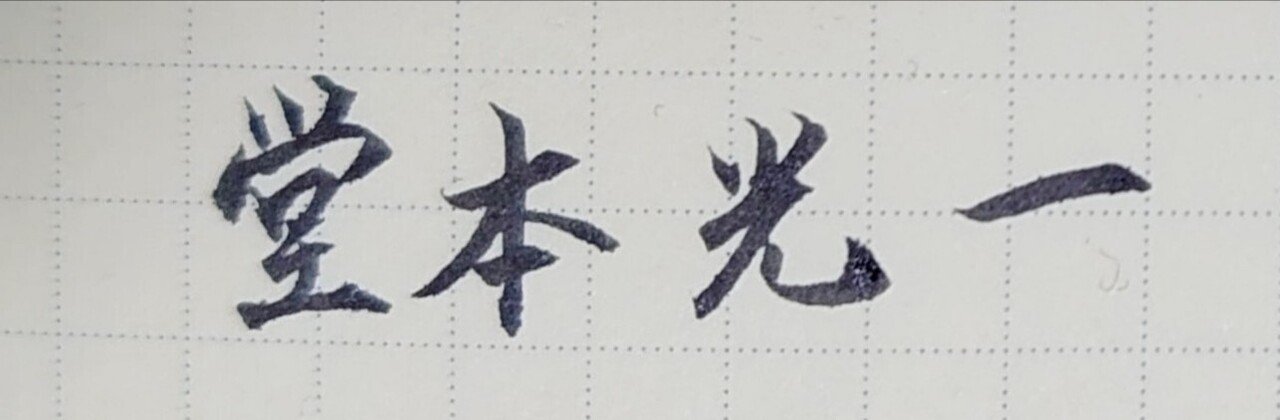 堂本光一